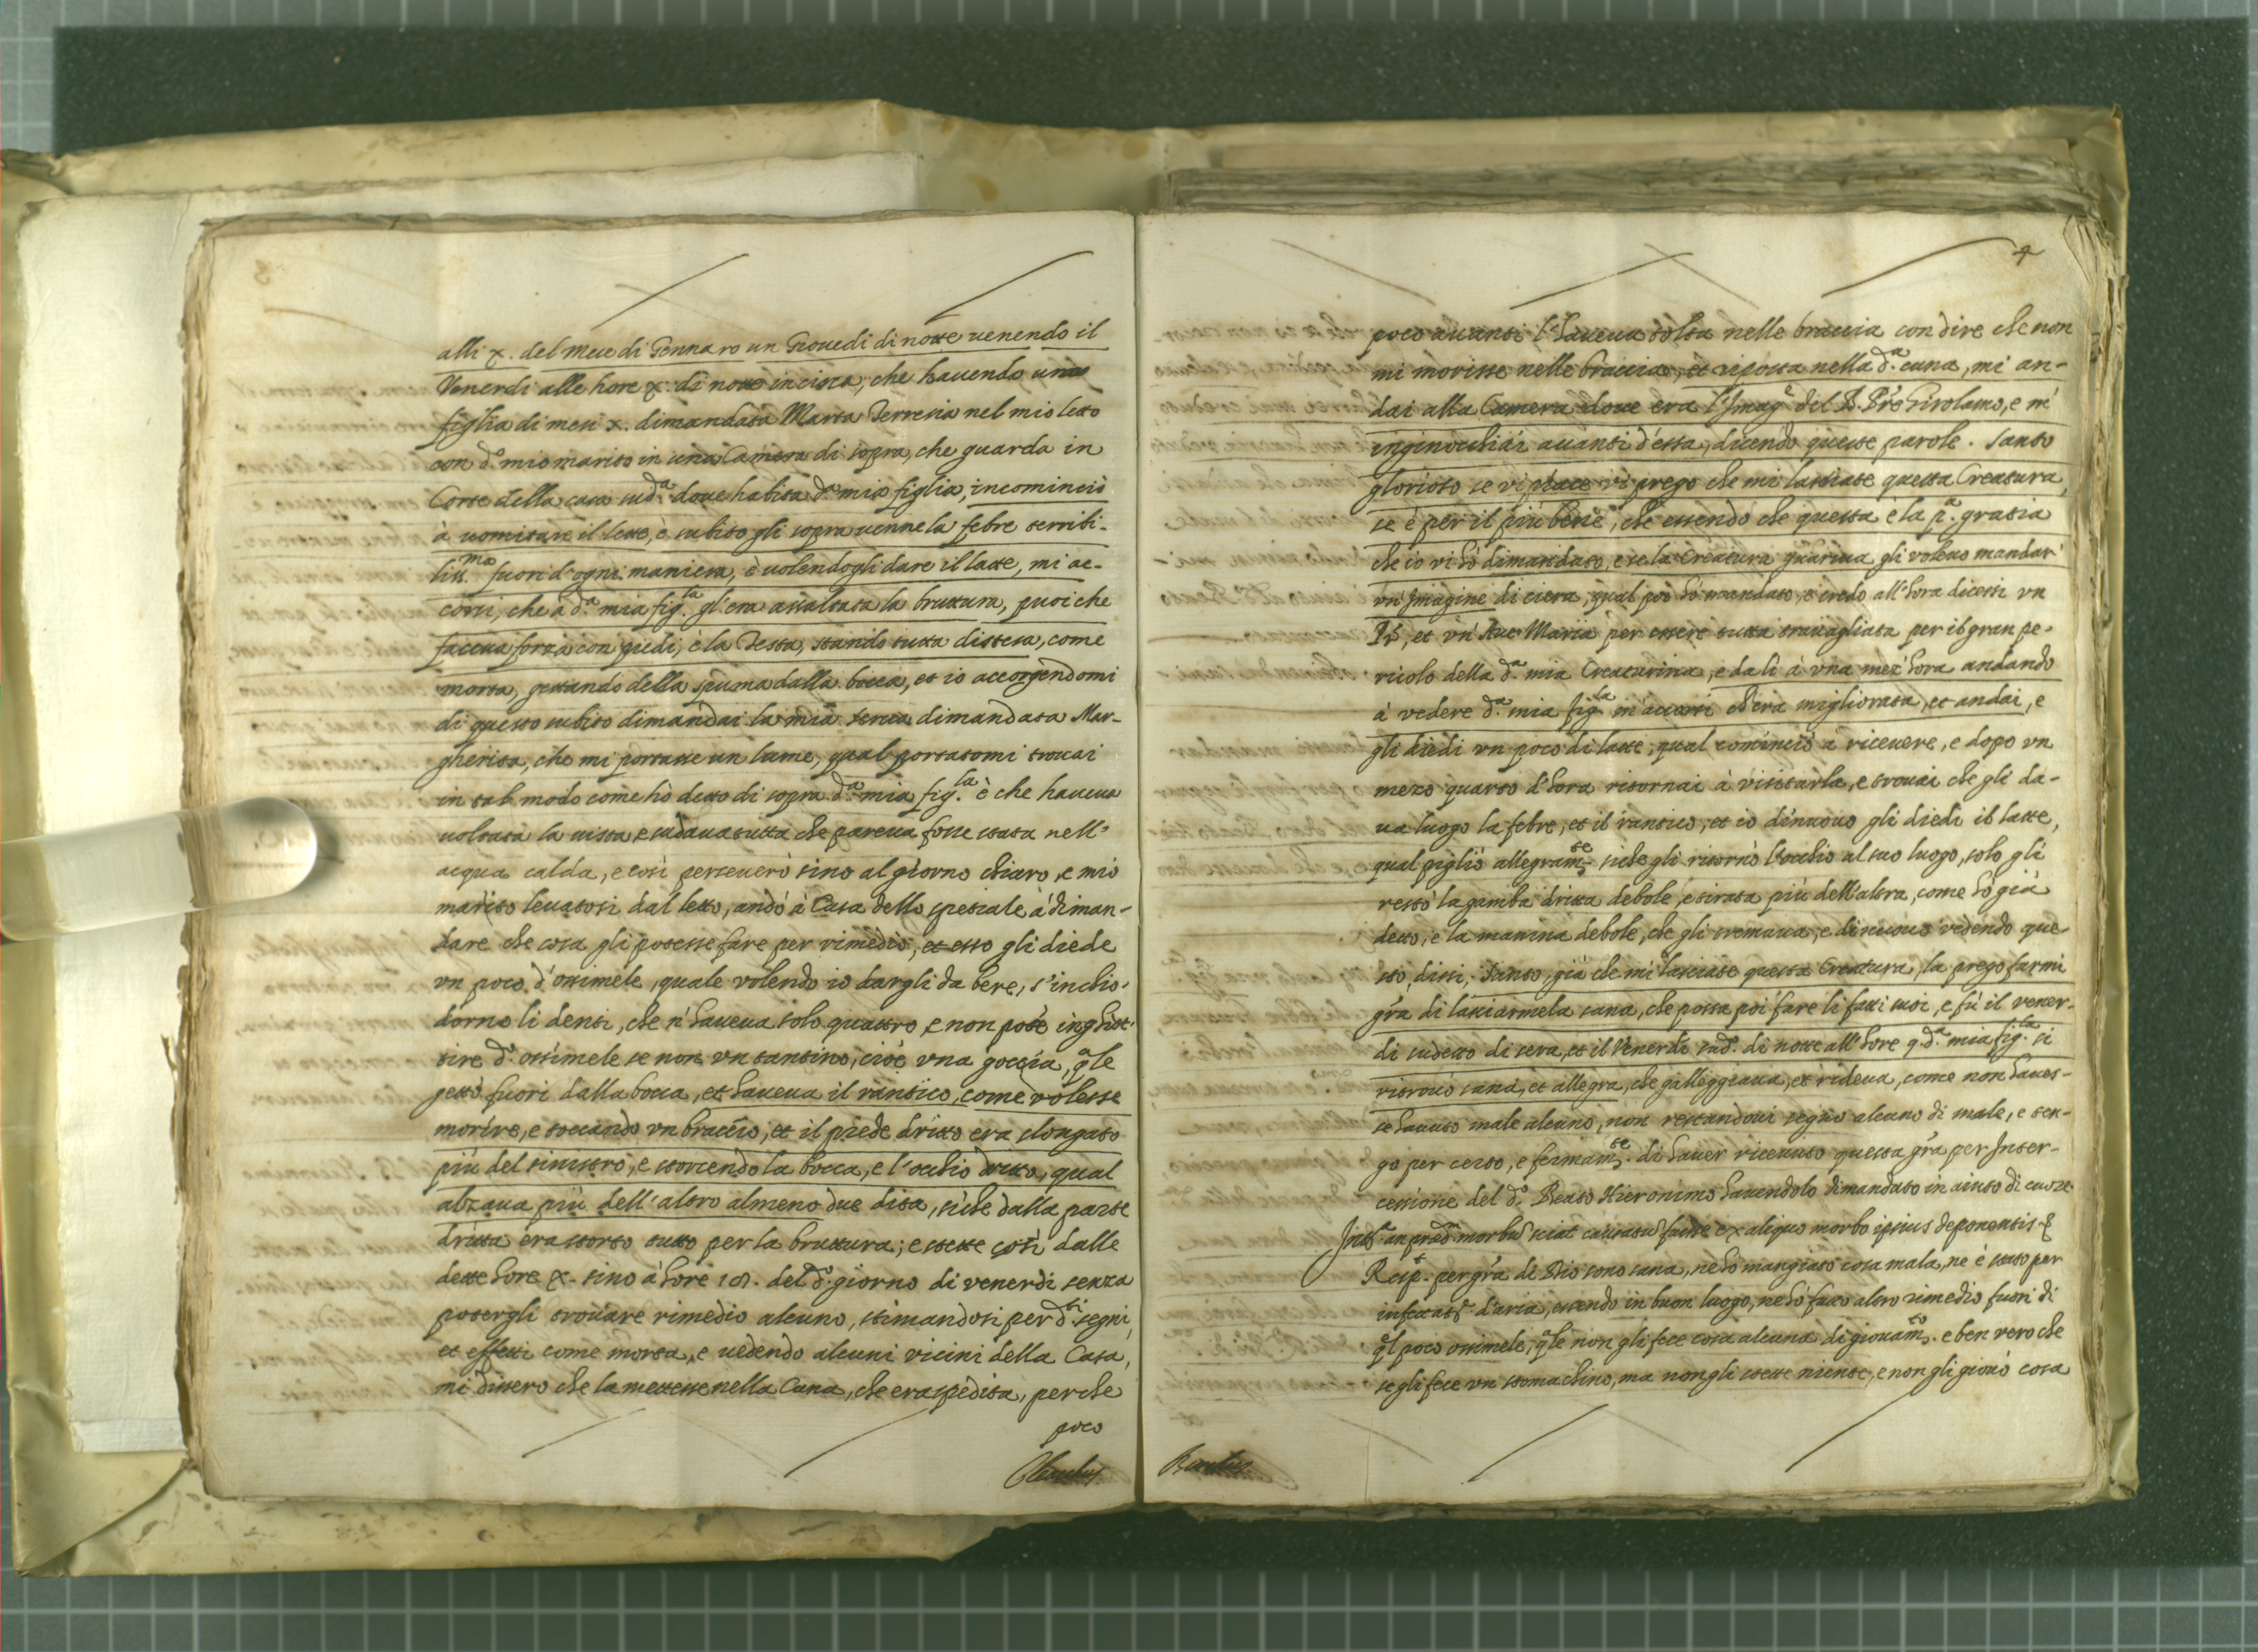 alli x. del mese di Gennaro un Giouedi di notte uenendo il
Venerdi alle hore x. di notte in circa, che hauendo una
figlia di mesi x. dimandata Marta Terresia nel mio letto
con d.º mio marito in una Camera di sopra, che guarda in
Corte della casa sud.ª doue habita d.ª mia figlia, incominciò
à uomitare il latte, è subito gli soprauenne la febre terribi-
liss.ma fuori d'ogni maniera, è uolendogli dare il latte, mi ac-
corsi, che à d.ª mia fig.la gl'era assaltata la bruttura, puoi che
faceua forza con piedi, è la Testa, stando tutta distesa, come
morta, gettando della spuma dalla bocca, et io accorgendomi
di questo subito dimandai la mia serua dimandata Mar-
gherita, che mi portasse un lume, qual portatomi trouai
in tal modo come hò detto di sopra d.ª mia fig.la è che haueua
uoltata la uista, e sudaua tutta che pareua fosse stata nell'
acqua calda, e così perseuerò sino al giorno chiaro, e mio
marito leuatosi dal letto, andò à Casa dello spetiale à diman-
dare che cosa gli potesse fare per rimedio, et esso gli diede
vn poco d'ossimele, quale volendo io dargli da bere, s'inchio-
dorno li denti, che n'haueua solo quattro, e non potè inghiot-
tire d.º ossimele se non vn tantino, cioè vna goccia, qªle
gettò fuori dalla bocca, et haueua il rantico, come volesse
morire, e toccando vn braccio, et il piede dritto era slongato
più del sinistro, e storcendo la bocca, e l'occhio dritto, qual
alzaua più dell'altro almeno due dita, siche dalla parte
dritta era storto tutto per la bruttura; e stette così dalle
dette hore x. sino à hore 18. del d.º giorno di venerdi senza
potergli trouare rimedio alcuno, stimandosi per d.ti segni,
et effetti come morta, e uedendo alcuni vicini della Casa,
mi dissero che la mettesse nella Cuna, che era spedita, perche
poco
4
poco auanti l'haueua tolta nelle braccia con dire che non
mi morisse nelle braccia, et riposta nella d.ª cuna, mi an-
dai alla Camera doue era l'Imagè del B. Prè Girolamo, e m'
inginochiai auanti d'essa, dicendo queste parole. Santo
glorioso se vi piace vi prego che mi lasciate questa Creatura,
se è per il più bene, che essendo che questa è la p.ª gratia
che io vi hò dimandato, e se la Creatura guariua gli voleuo mandar'
vn'Imagine di ciera, qual poi hò mandato, e credo all'hora dicessi vn
Pr, et vn'Aue Maria per essere tutta trauagliata per il gran pe-
ricolo della d.ª mia Creaturina, e da lì à vna mez'hora andando
à vedere d.ª mia fig.la m'accorsi ch'era migliorata, et andai, e
gli diedi vn poco di latte, qual cominciò à riceuere, e dopo vn
mezo quarto d'hora ritornai à visitarla, e trouai che gli da-
ua luogo la febre, et il rantico, et io di nuouo gli diedi il latte,
qual pigliò allegram.te siche gli ritornò l'occhio al suo luogo, solo gli
restò la gamba dritta debole, e tirata più dell'altra, come hò già
detto, e la manina debole, che gli tremaua, e di nuouo vedendo que-
sto, dissi, Santo, già che mi lasciate questa Creatura, la prego farmi
grà di lasciarmela sana, che possa poi fare li fatti suoi, e fù il vener-
di sudetto di sera, et il Venerdi sud.º di notte all'hore 9. d.ª mia fig.la si
ritrouò sana, et allegra, che galleggiaua, et rideua, come non haues-
se hauuto male alcuno, non restandoui segno alcuno di male, e ten-
go per certo, e fermam.te di hauer riceuuto questa grà per Inter-
cessione del d.º Beato Hieronimo hauendolo dimandato in aiuto di cuore.
Int.ª an præd. morbũ sciat causatũ fuisse ex aliquo morbo ipsius deponentis &
Resp.t per grà di Dio sono sana, ne hò mangiato cosa mala, ne è stato per
infettat.e d'aria, essendo in buon luogo, ne hò fatto altro rimedio fuori di
ql poco ossimele, qªle non gli fece cosa alcuna di giouam.to e ben vero che
se gli fece vn stomachino, ma non gli stette niente, e non gli giouò cosa